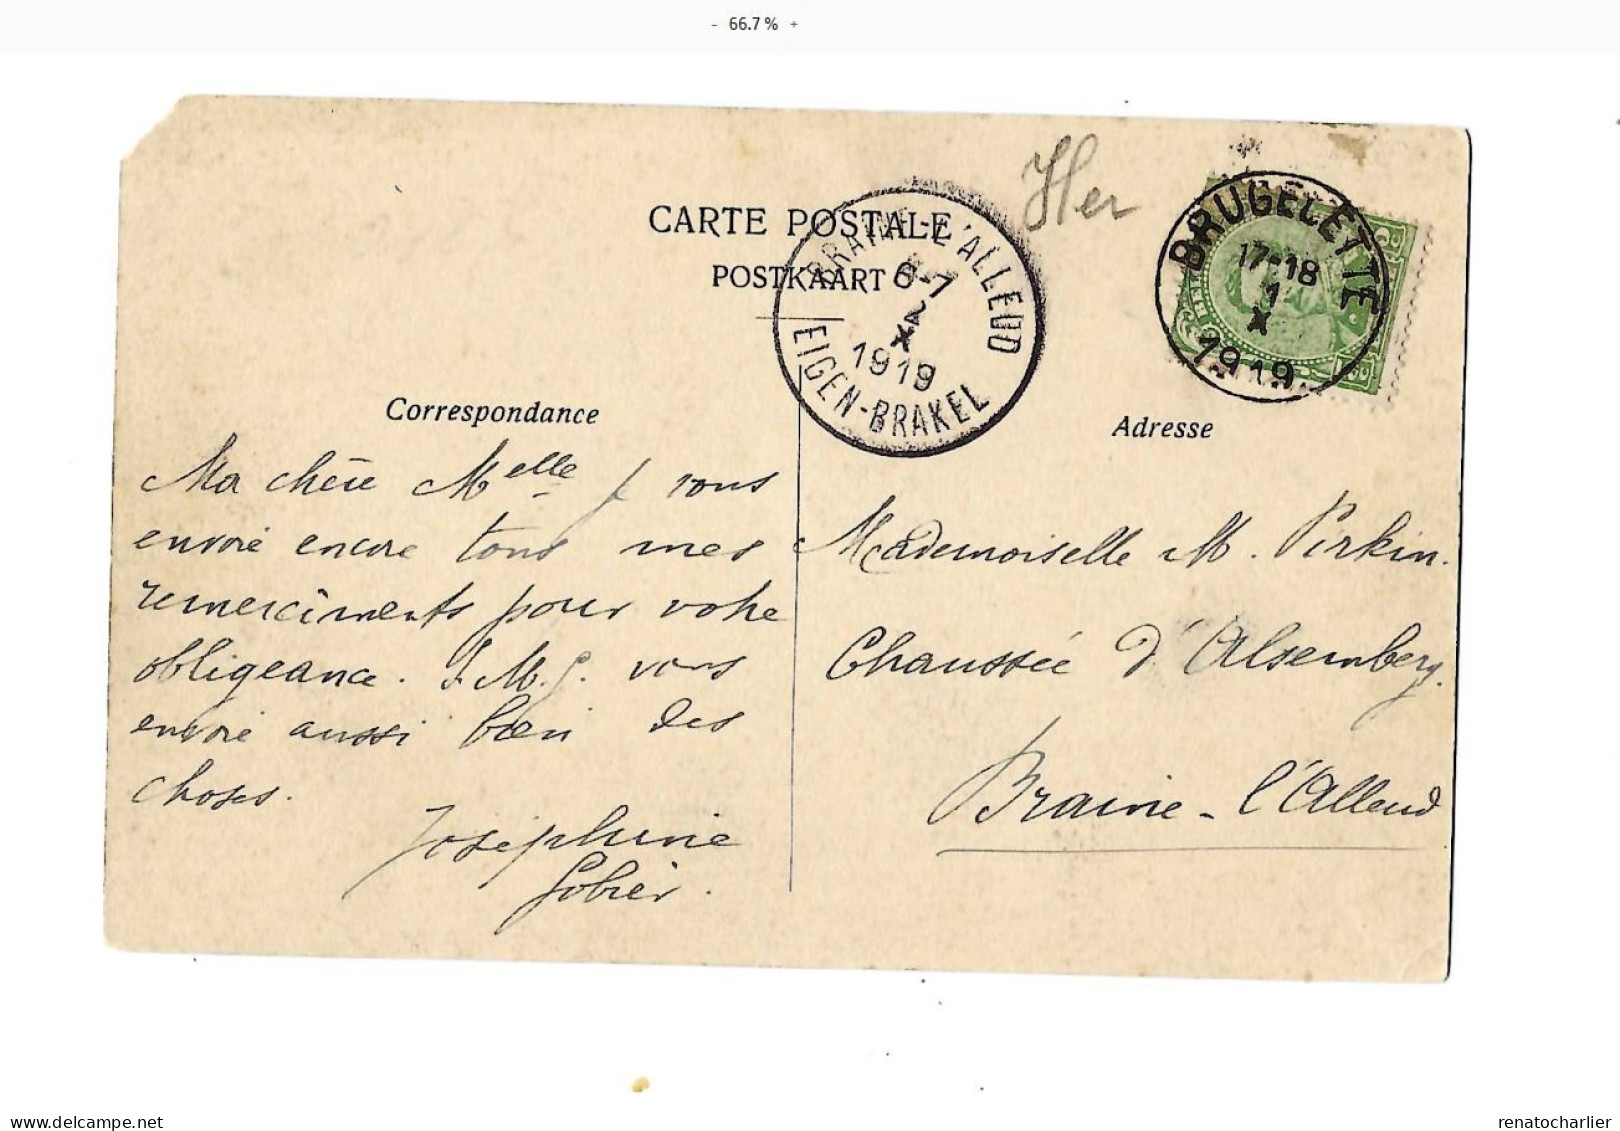 - 66.7 % +
CARTE POSTALE
POSTKAART
BRAINE-L'ALLEUD
6-7
2
X
1919
EIGEN-BRAKEL
Her
BRUGELETTE
17-18
1
X
1919
Correspondance
Adresse
Ma chère Melle J vous
envoie encore tous mes
remerciments pour votre
obligeance. J.M.J. vous
envoie aussi bien des
choses.
Joséphine
Mademoiselle M. Pirkin.
Chaussée d'Alsemberg.
Braine-l'Alleud
delcampe.net
renatocharlier